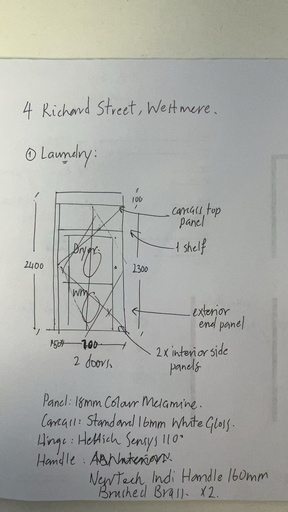 4 Richard Street, Wettmere.
① Laundry:
100
carcass top
panel
1 shelf
Dryer
2400
2300
WM
exterior
end panel
700
2 doors.
2x interior side
panels
Panel: 18mm Colour Melamine.
Carcass: Standard 16mm White Gloss.
Hinge: Hettich Sensys 110°
Handle:
NewTech Indi Handle 160mm
Brushed Brass. x2.